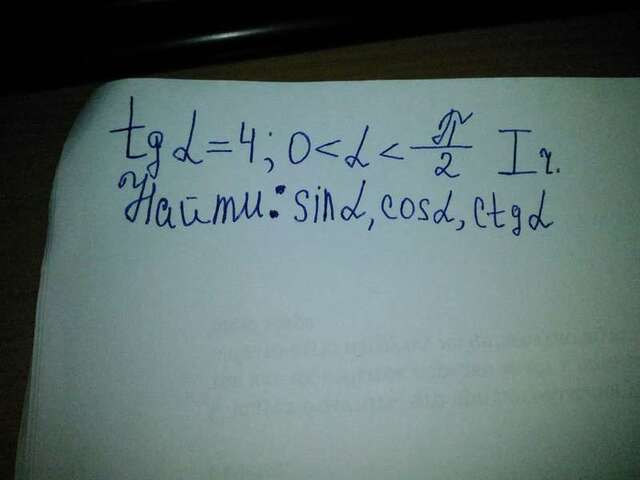 tg α = 4; 0 < α < π/2 I ч.
Найти: sin α, cos α, ctg α